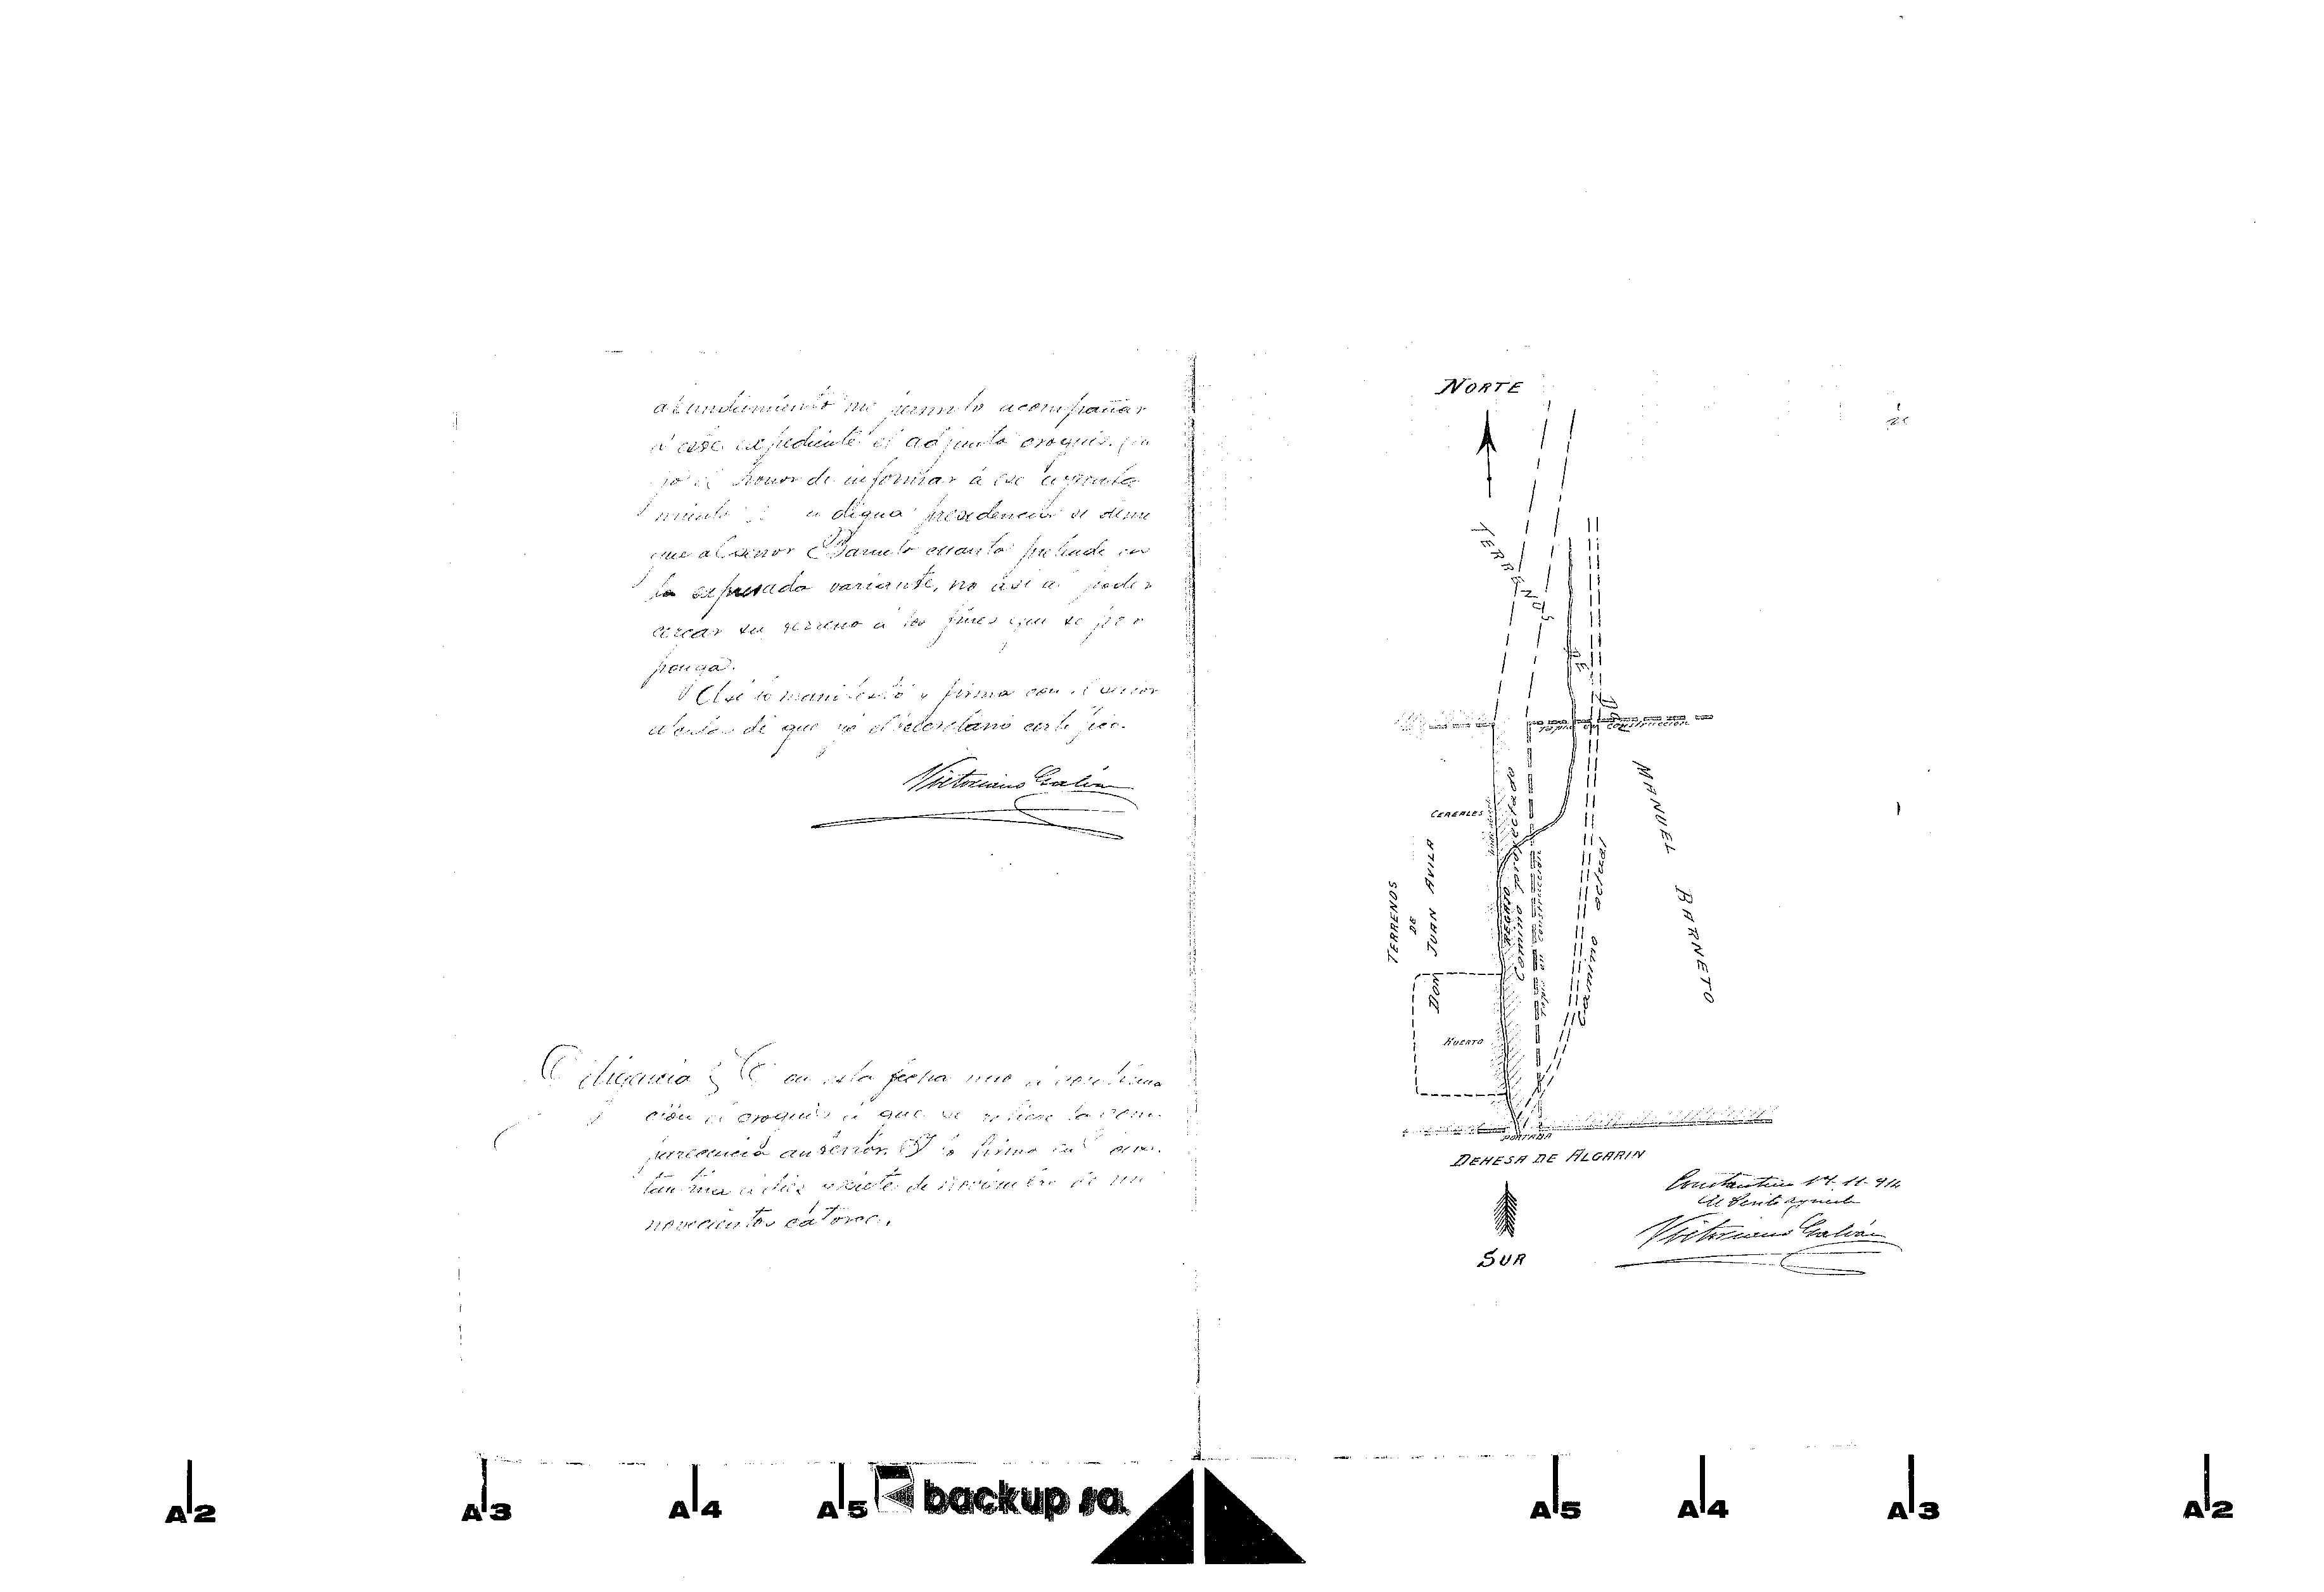 abundamiento me permito acompañar
á este expediente el adjunto croquis.
el honor de informar á ese Ayunta
miento digna presidencia se
que al señor Barneto cuanto pretende en
la expresada variante, no asi al poder
cercar su terreno á los fines que se pro
ponga.
Asi lo manifestó y firma con el señor
Alcalde de que yo el Secretario certifico.
Victoriano Galván
Diligencia En esta fecha uno á continua
ción el croquis á que se refiere la com
parecencia anterior. Y lo firmo en Cons
tantina á diez y siete de noviembre de mil
novecientos catorce.
NORTE
TERRENOS
DE
Dn
MANUEL BARNETO
Tapia en construccion
CEREALES
TERRENOS
DE
DON JUAN AVILA
REGAJO
Camino proyectado
Tapia en construccion
Camino actual
HUERTO
PORTADA
DEHESA DE ALGARIN
SUR
Constantina 17-11-914
El Perito agrícola
Victoriano Galván
A2
A3
A4
A5
backup sa.
A5
A4
A3
A2